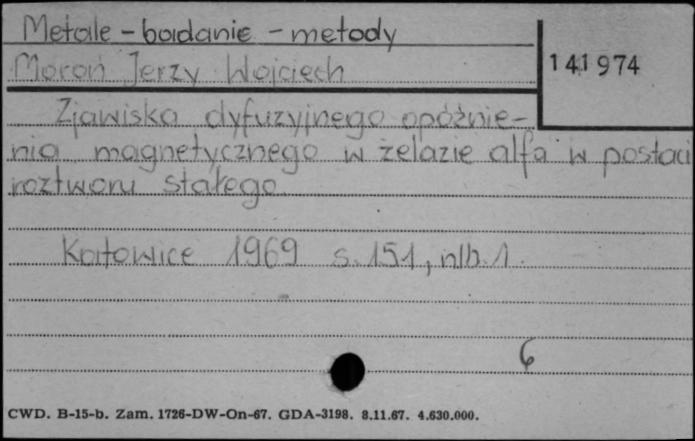 Metale - badanie - metody
Moroń Jerzy Wojciech
141974
Zjawiska dyfuzyjnego opóźnie-
nia magnetycznego w żelazie alfa w postaci
roztworu stałego
Katowice 1969 s. 151, nlb. 1.
6
CWD. B-15-b. Zam. 1726-DW-On-67. GDA-3198. 8.11.67. 4.630.000.